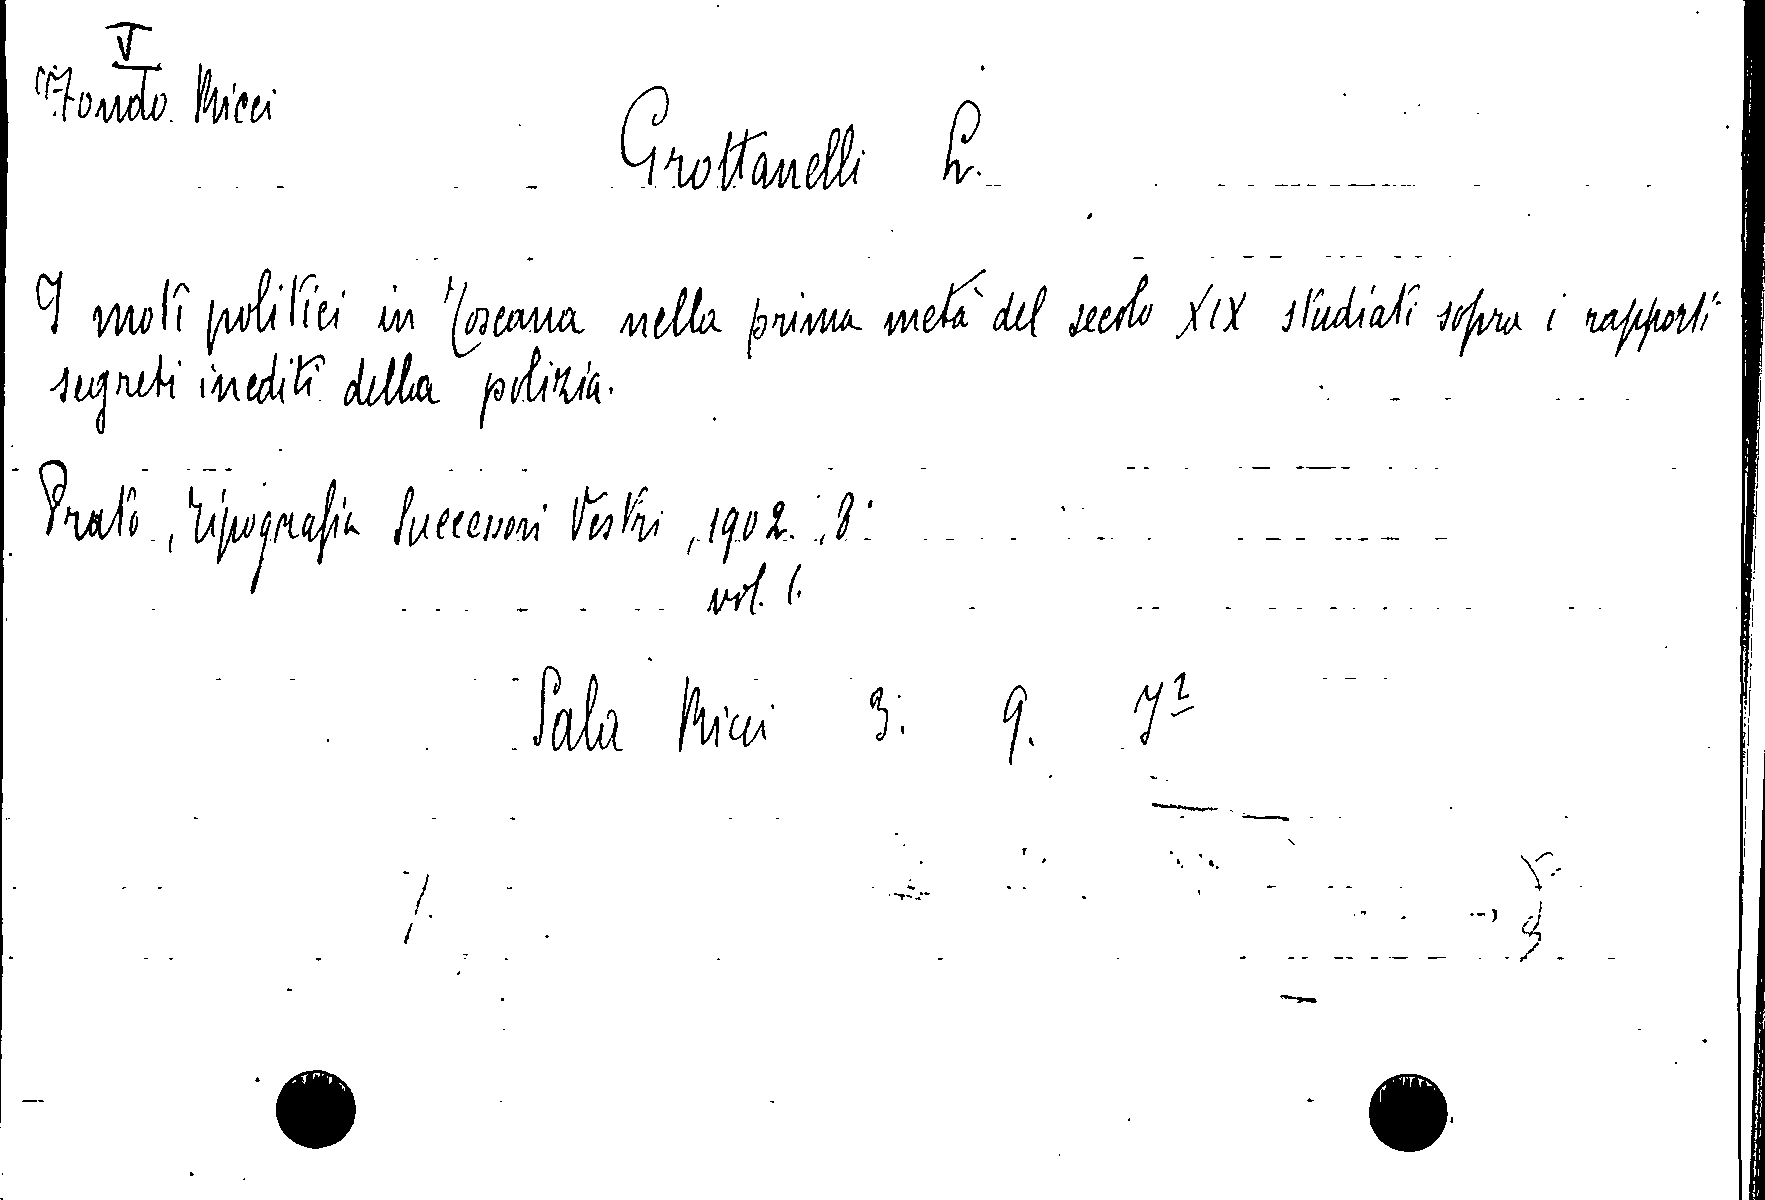 V
Fondo Ricci
Grottanelli L.
I moti politici in Toscana nella prima metà del secolo XIX studiati sopra i rapporti
segreti inediti della polizia.
Prato, Tipografia Successori Vestri, 1902. 8°
vol. 1.
Sala Ricci 3. 9. 7²